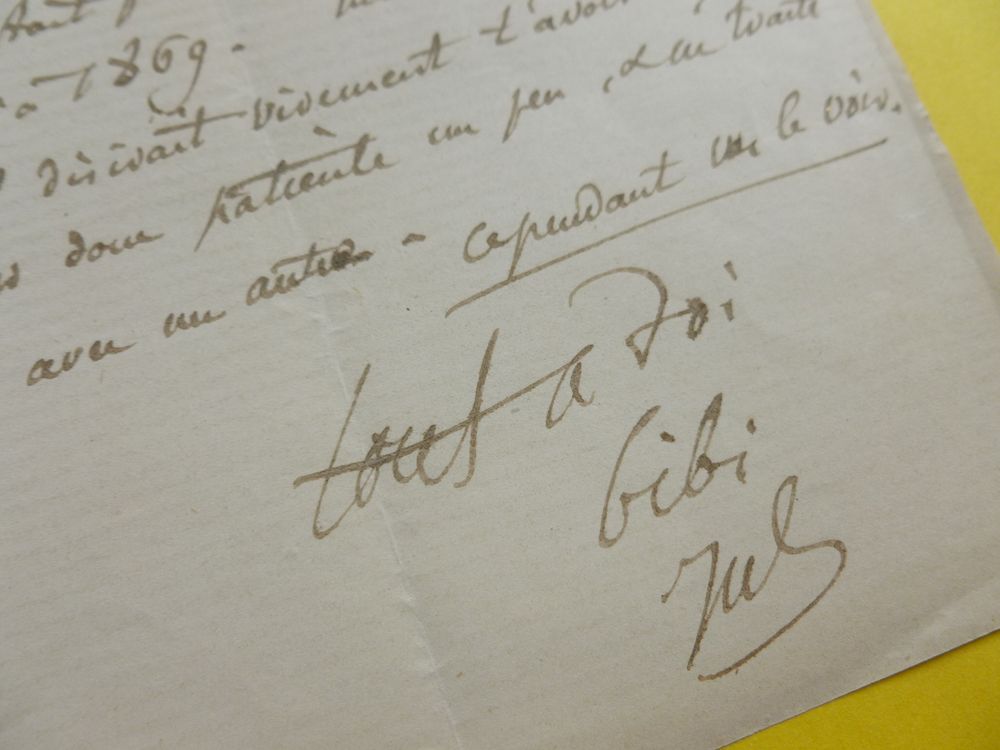 à 1869.
désirait vivement t'avoir
donc patiente un peu, &
avec un autre - cependant va le voir.
tout à toi
bibi
Jul